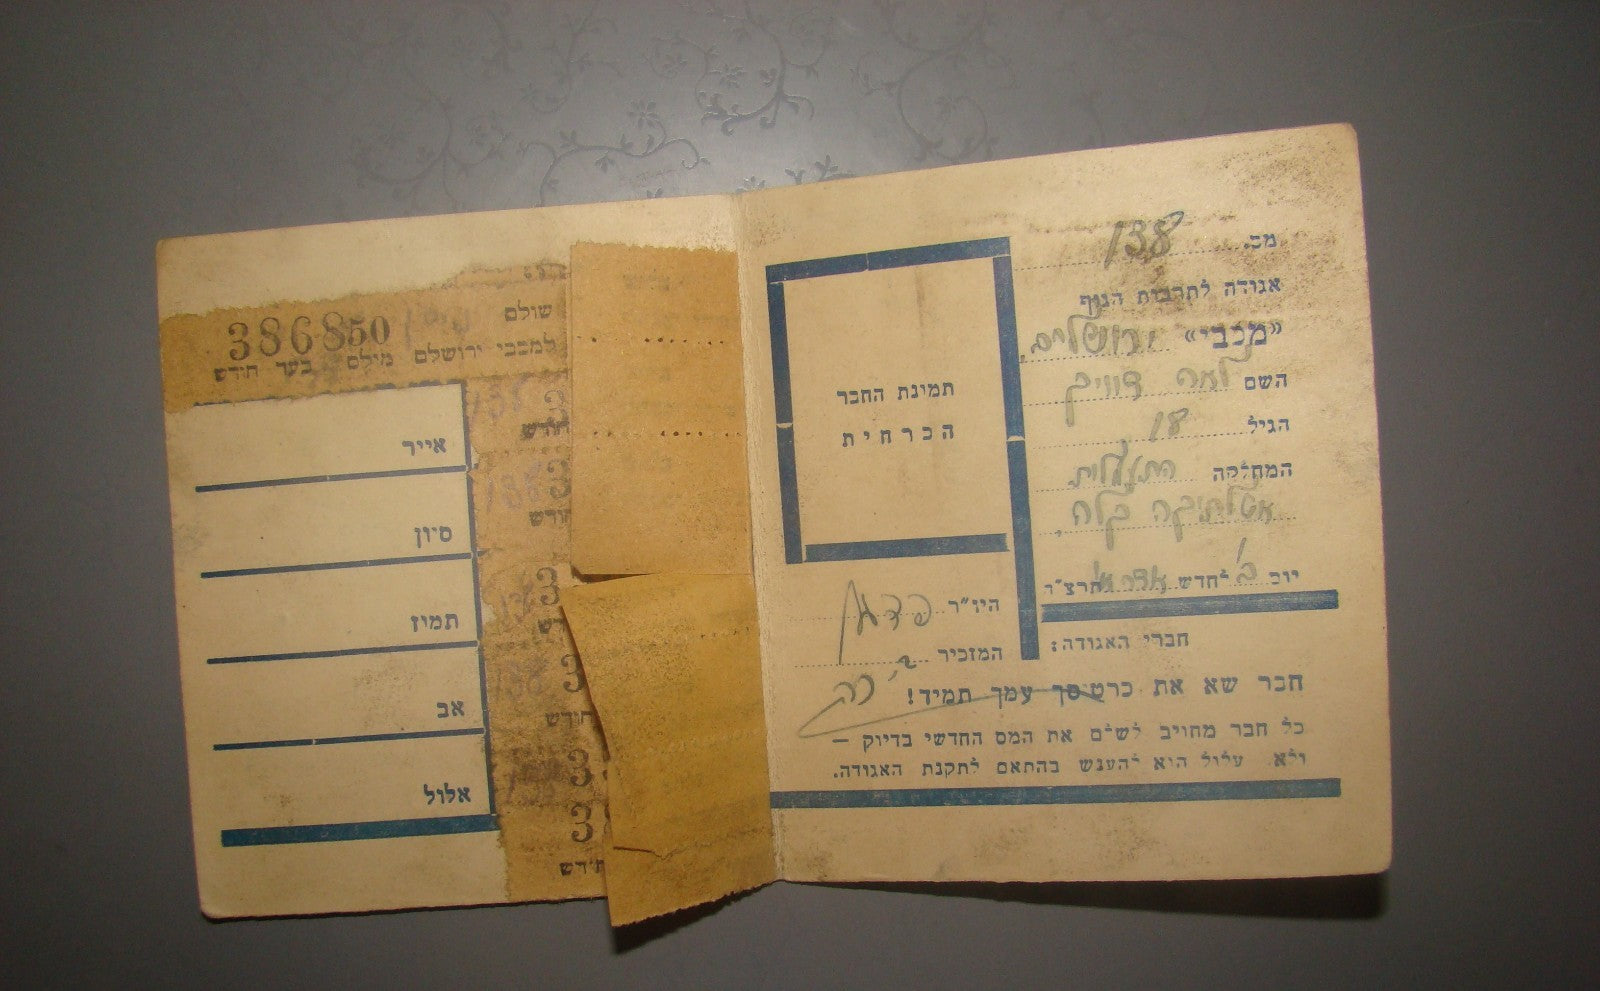 מס. 138
אגודה לתרבות הגוף
«מכבי» ירושלים.
השם לאה דוויק
הגיל 18
המחלקה התעמלות
אטלתיקה קלה.
יום ב' לחדש אדר תרצ"ר
חברי האגודה:
תמונת החבר
הכרחית
היו"ר
המזכיר
חבר שא את כרטיסך עמך תמיד!
כל חבר מחויב לשלם את המס החדשי בדיוק —
ולא עלול הוא להענש בהתאם לתקנת האגודה.
שולם
386850
למכבי ירושלים מילס בעד חודש
138
חודש
138
חודש
138
138
חודש
חודש
אייר
סיון
תמוז
אב
אלול